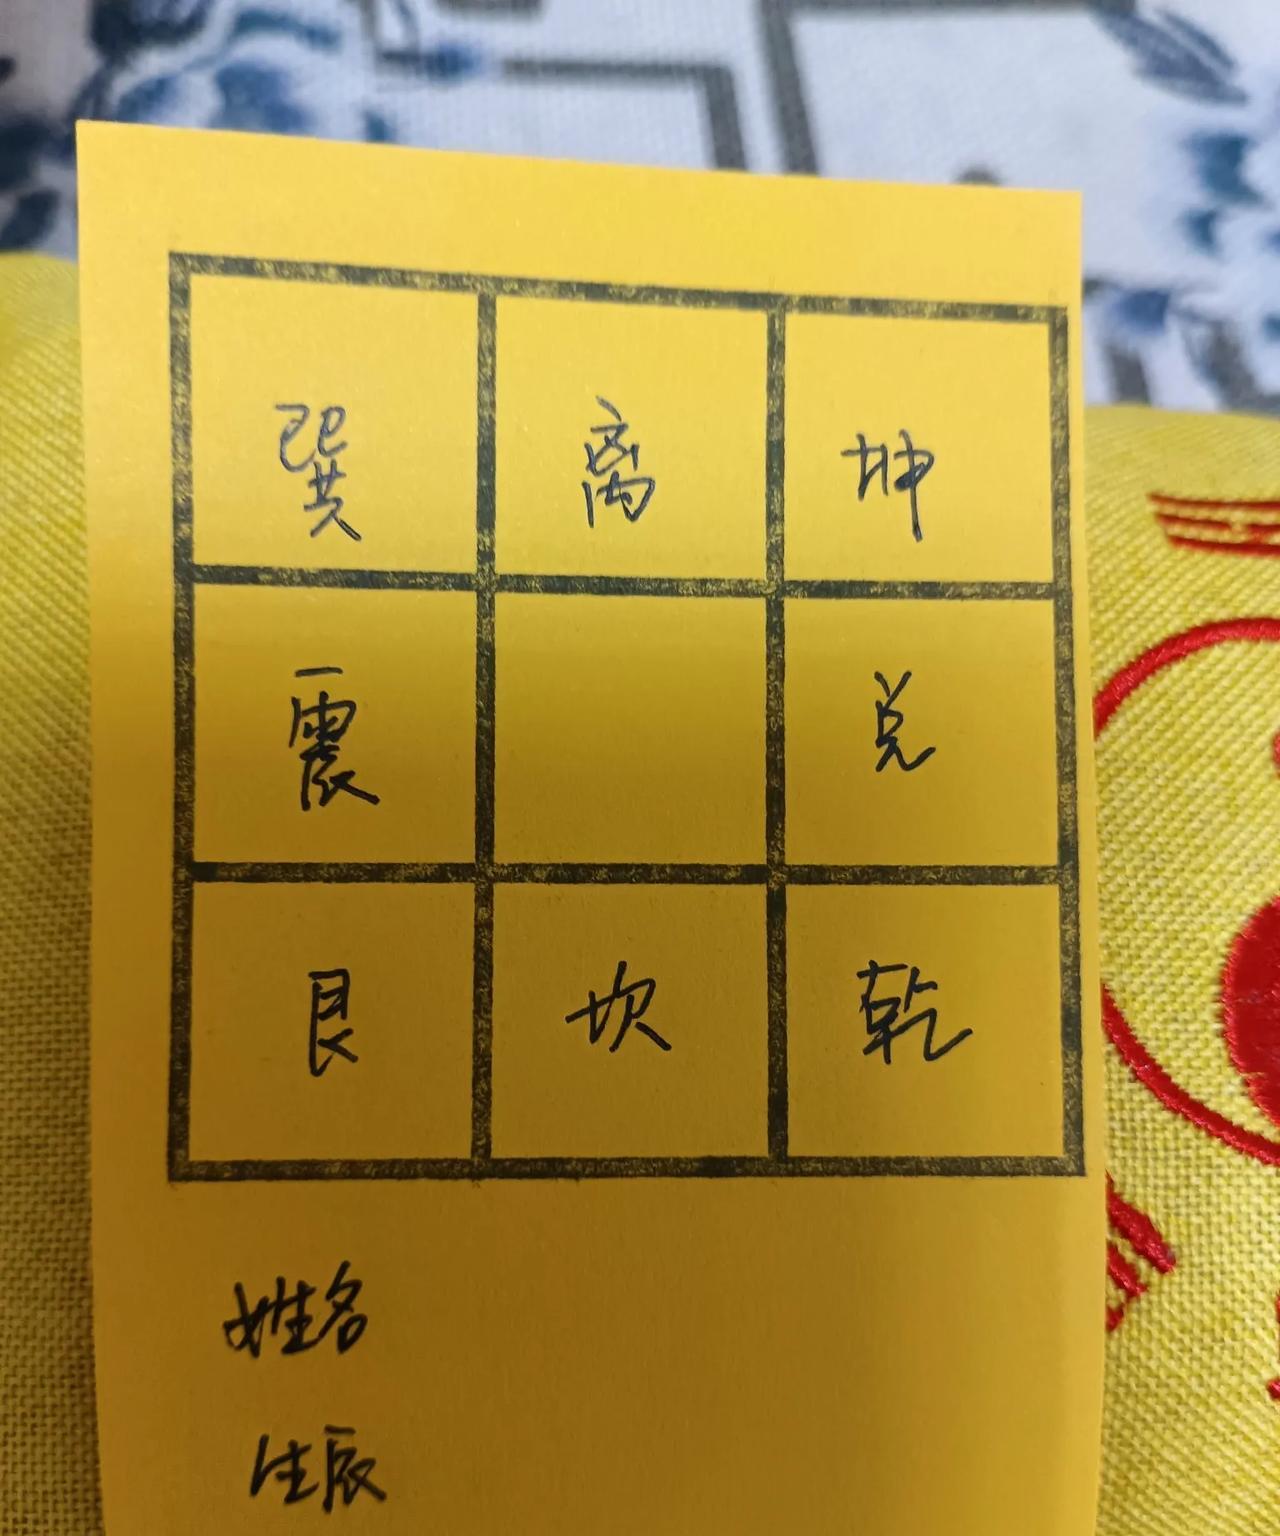 巽 离 坤
震 兑
艮 坎 乾
姓名
生辰